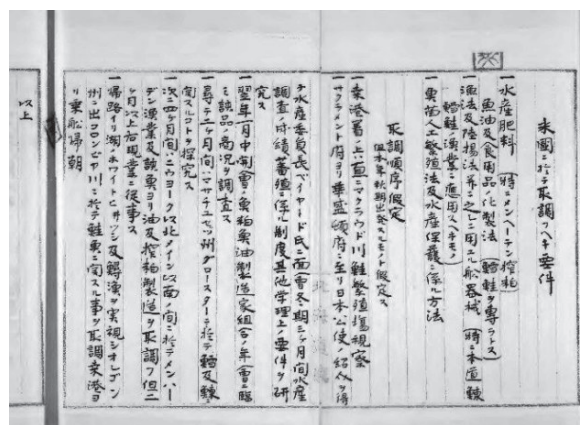 米國ニ於テ取調フヘキ要件
一水産肥料（時ニメンヘーデン搾粕
魚油及食用品ノ化製法（鱈鮭ヲ専ラトス）
一漁法及陸揚法并ニ之レニ用ユル船器械（時ニ本道鱈
鱈鮭漁業ニ應用スヘキモノ
一魚苗人工繁殖法及水産保護ニ係ル方法
取調順序假定
但本年秋期出発スルモノト假定ス
一桑港着ノ上ハ直ニマクラウド川鮭繁殖場視察
一サクラメント府ヨリ華盛頓府ニ至リ日本公使ノ紹介ヲ得
テ水産委員長ベイヤード氏ニ面會冬期三ヶ月間水産
調査ノ成績蕃殖ニ係ル制度其他学理上ノ要件ヲ研
究ス
一翌年一月中開會ノ魚粕魚油製造家組合ノ年會ニ臨
ミ該品ノ商況ヲ調査ス
一尋テ二ヶ月間ハマサチユセツ州グロースターニ於テ鱈及鯡ニ
関スルコトヲ探究ス
一次ニ四ヶ月間ニウヨーク以北メイン以西ノ間ニ於テメンハー
デン漁業及該魚ヨリ油及搾粕製造ヲ取調フ但二
ヶ月以上右現業ニ従事ス
一帰路イリ湖ノホワイトヒセツシ及鱒漁ヲ実視シオレゴン
州ニ出コロンビヤ川ニ於テ鮭魚ニ関スル事ヲ取調桑港ヨ
リ乗船帰朝
以上